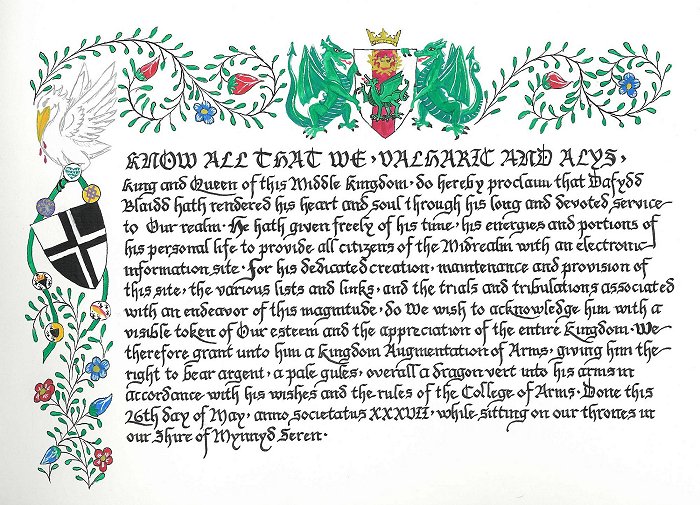 KNOW ALL THAT WE, VALHARIC AND ALYS,
King and Queen of this Middle Kingdom, do hereby proclaim that Dafydd
Blaidd hath rendered his heart and soul through his long and devoted service
to Our realm. He hath given freely of his time, his energies and portions of
his personal life to provide all citizens of the Midrealm with an electronic
information site. For his dedicated creation, maintenance and provision of
this site, the various lists and links, and the trials and tribulations associated
with an endeavor of this magnitude, do We wish to acknowledge him with a
visible token of Our esteem and the appreciation of the entire Kingdom. We
therefore grant unto him a Kingdom Augmentation of Arms, giving him the
right to bear argent, a pale gules, overall a dragon vert into his arms in
accordance with his wishes and the rules of the College of Arms. Done this
26th day of May, anno societatus XXXVII, while sitting on our thrones in
our Shire of Mynnyd Seren.